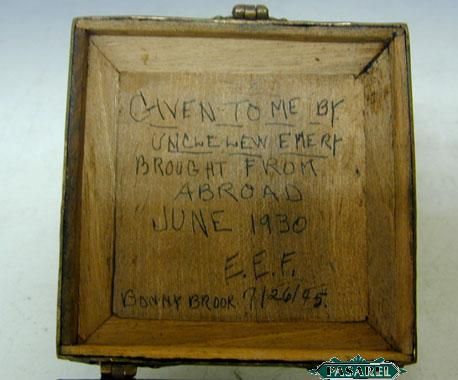 GIVEN TO ME BY
UNCLE LEW EMERY
BROUGHT FROM
ABROAD
JUNE 1930
E.E.F.
BONNY BROOK 7/26/45.
PASAREL